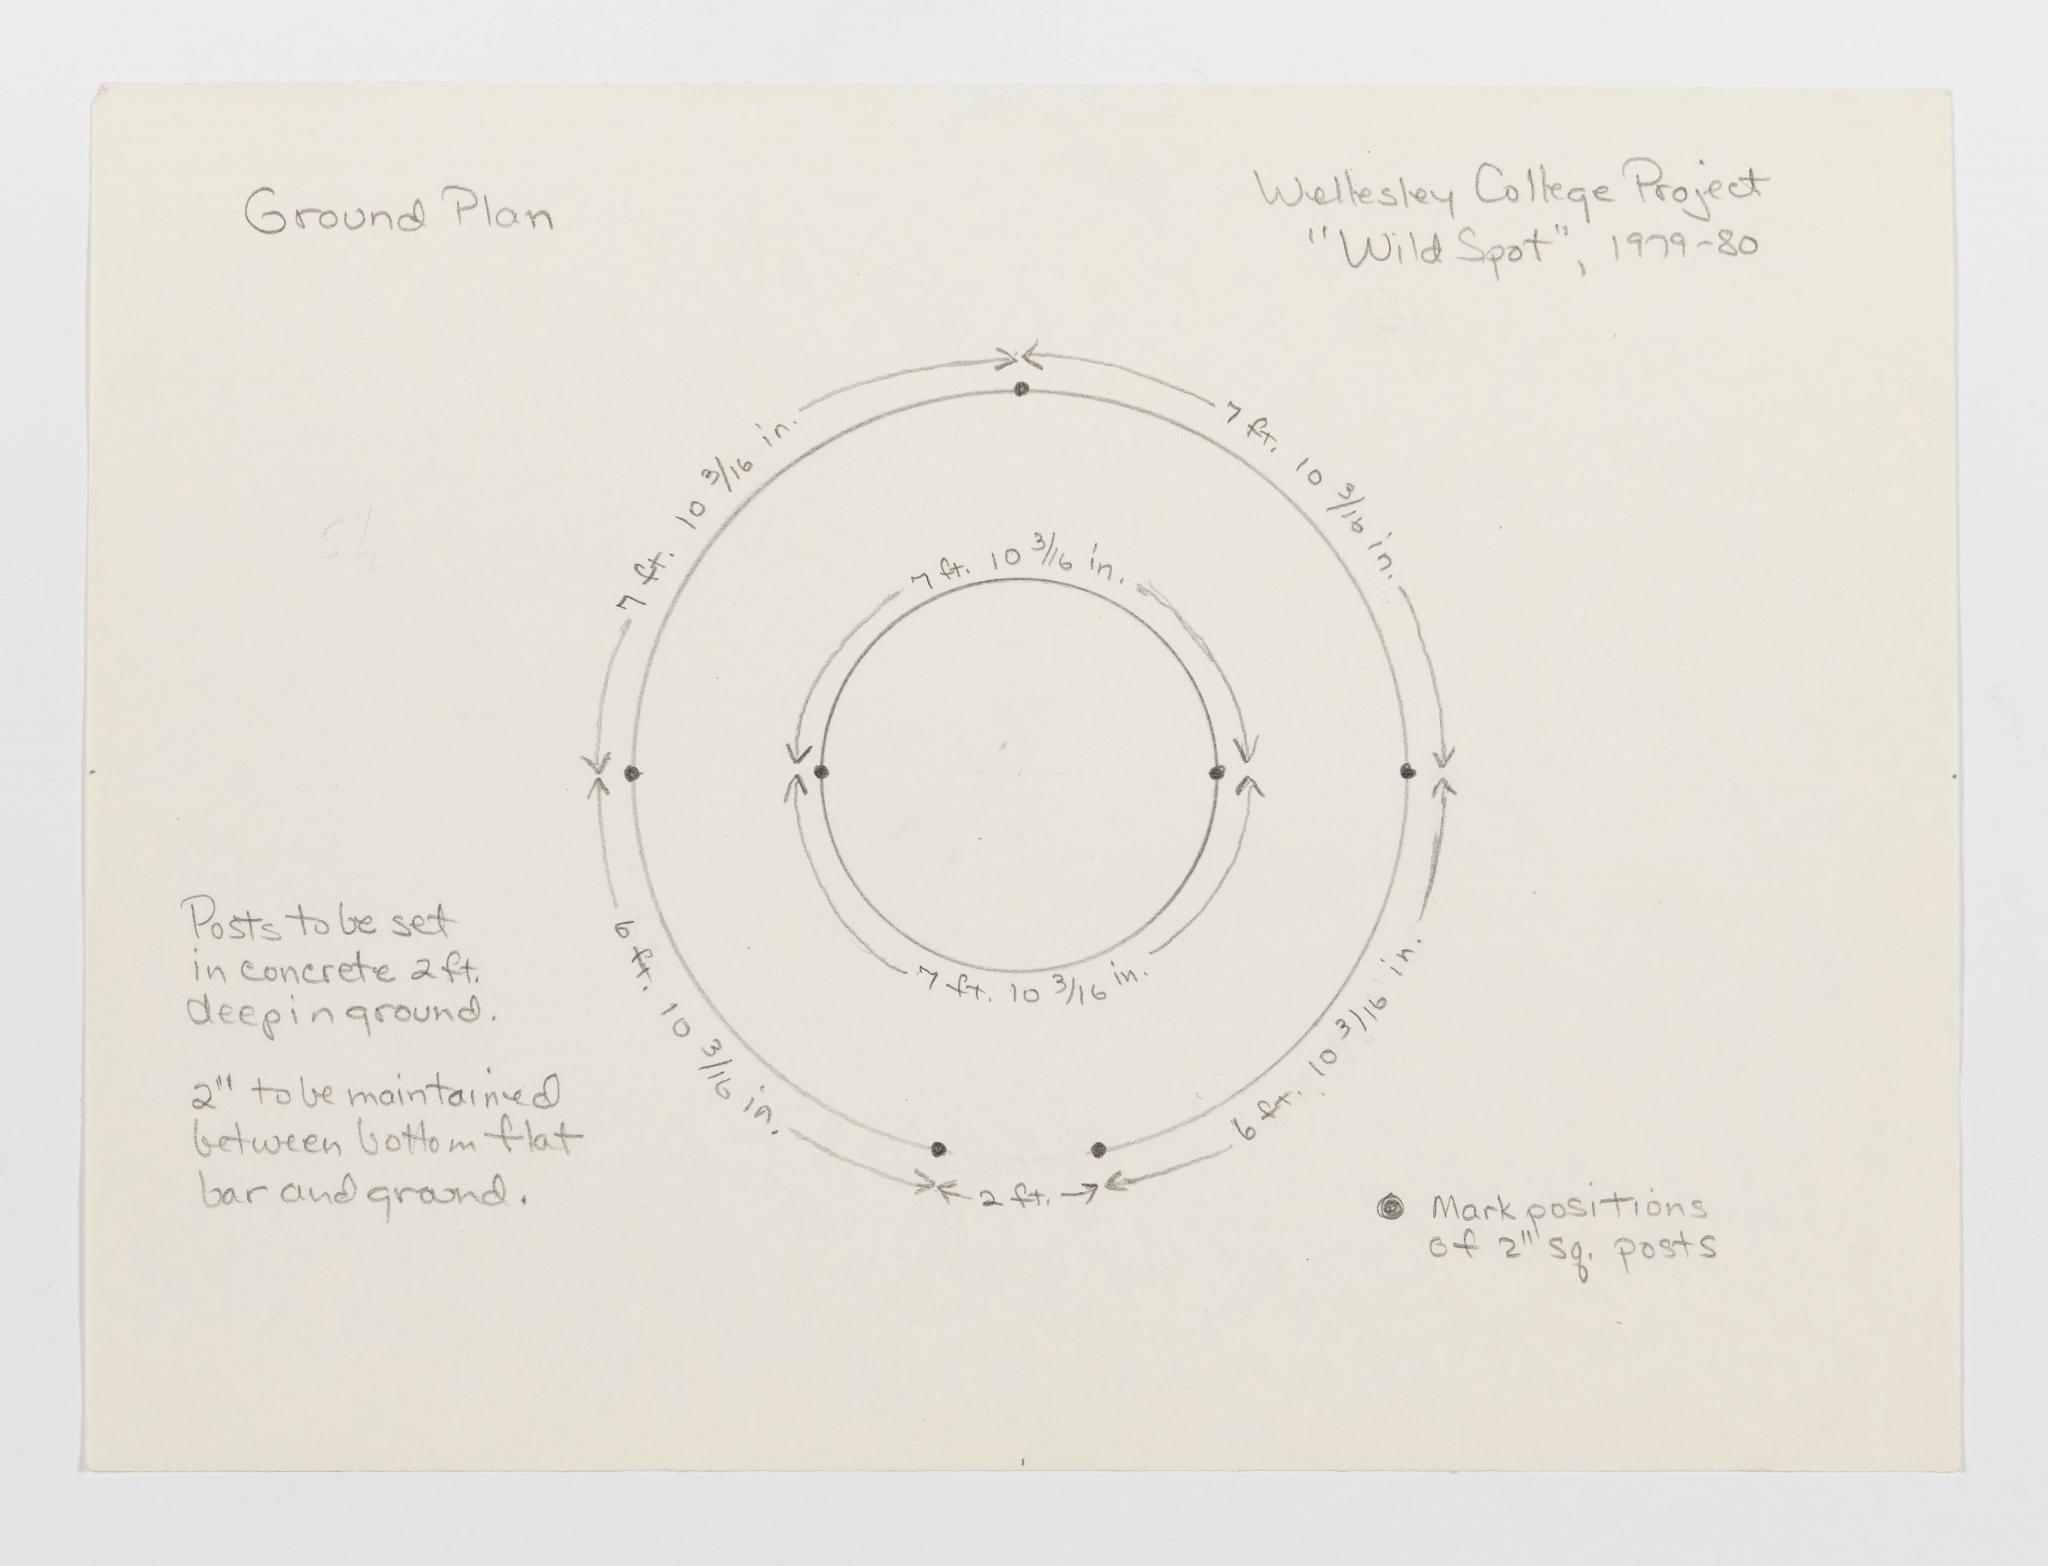 Ground Plan
Wellesley College Project
"Wild Spot", 1979-80
7 ft. 10 3/16 in.
7 ft. 10 3/16 in.
7 ft. 10 3/16 in.
7 ft. 10 3/16 in.
6 ft. 10 3/16 in.
6 ft. 10 3/16 in.
2 ft.
Posts to be set
in concrete 2 ft.
deep in ground.
2" to be maintained
between bottom flat
bar and ground.
Mark positions
of 2" sq. posts